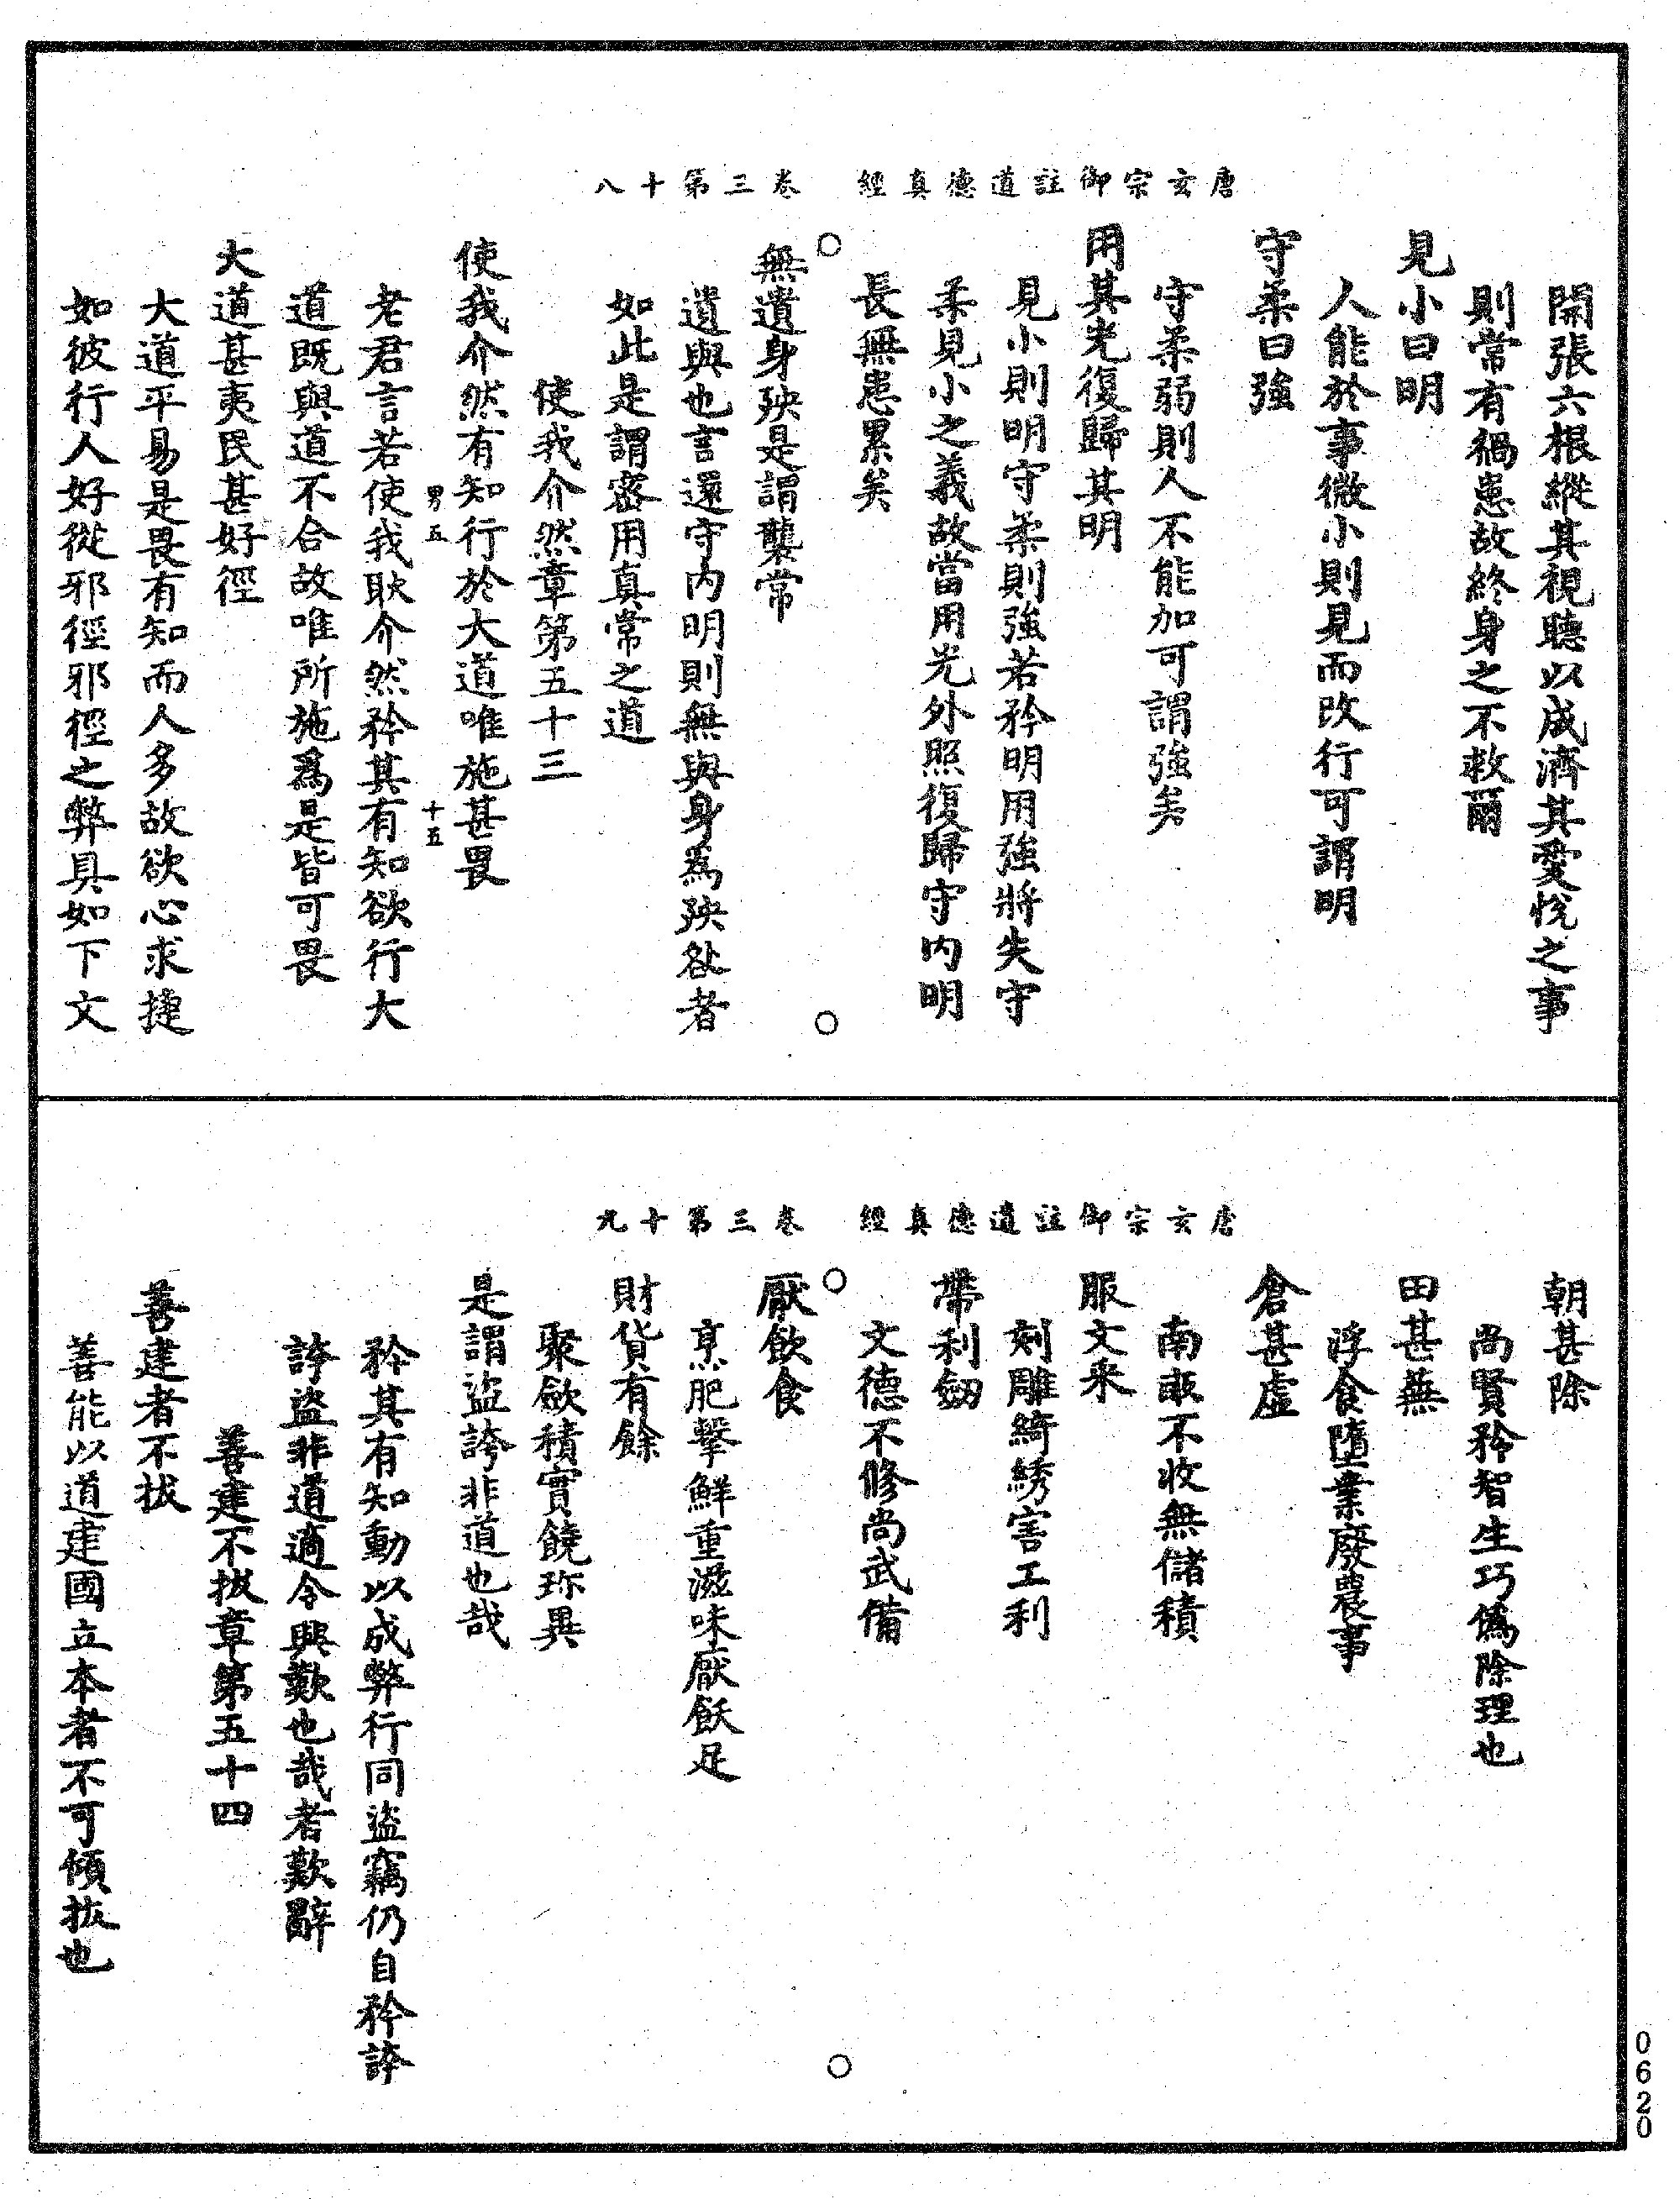 唐玄宗御註道德真經　卷三第十八
開張六根縱其視聽以成濟其愛悅之事
則常有禍患故終身之不救爾
見小曰明
人能於事微小則見而改行可謂明
守柔曰強
守柔弱則人不能加可謂強矣
用其光復歸其明
見小則明守柔則強若矜明用強將失守
柔見小之義故當用光外照復歸守內明
長無患累矣
無遺身殃是謂襲常
遺與也言還守內明則無與身為殃咎者
如此是謂密用真常之道
使我介然章第五十三
男五　十五
使我介然有知行於大道唯施甚畏
老君言若使我耿介然矜其有知欲行大
道既與道不合故唯所施為是皆可畏
大道甚夷民甚好徑
大道平易是畏有知而人多故欲心求捷
如彼行人好從邪徑邪徑之弊具如下文
唐玄宗御註道德真經　卷三第十九
朝甚除
尚賢矜智生巧偽除理也
田甚蕪
浮食墮業廢農事
倉甚虛
南畝不收無儲積
服文采
刻雕綺綉害工利
帶利劒
文德不修尚武備
厭飲食
烹肥擊鮮重滋味厭飫足
財貨有餘
聚歛積實饒珎異
是謂盜誇非道也哉
矜其有知動以成弊行同盜竊仍自矜誇
誇盜非道適令興歎也哉者歎辭
善建不拔章第五十四
善建者不拔
善能以道建國立本者不可傾拔也
0620